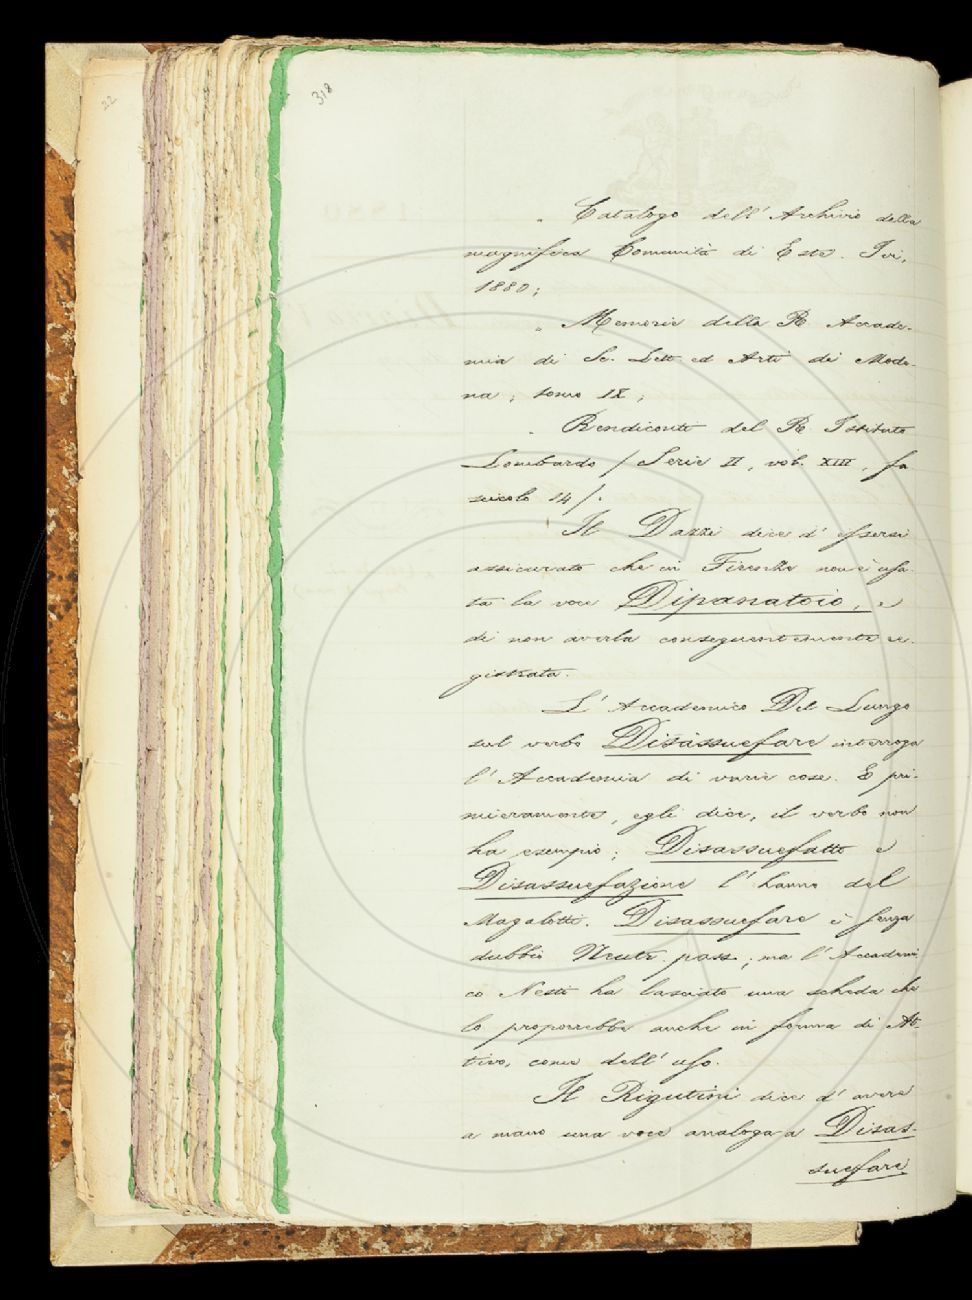 22
318
„ Catalogo dell' Archivio della
magnifica Comunità di Este. Ivi,
1880;
„ Memorie della R. Accade-
mia di Sc. Lett. ed Arti di Mode-
na; tomo IX;
„ Rendiconti del R. Istituto
Lombardo / Serie II, vol. XIII, fa
scicolo 14/.
Il Dazzi dice d' essersi
assicurato che in Firenze non è usa-
ta la voce Dipanatoio, e
di non averla conseguentemente re-
gistrata.
L' Accademico Del Lungo
sul verbo Disassuefare interroga
l' Accademia di varie cose. E pri-
mieramente, egli dice, il verbo non
ha esempio; Disassuefatto e
Disassuefazione l' hanno del
Magalotti. Disassuefare è senza
dubbio Neutr. pass.; ma l' Accademi
co Nesti ha lasciato una scheda che
lo proporrebbe anche in forma di At-
tivo, come dell' uso.
Il Rigutini dice d' avere
a mano una voce analoga a Disas-
suefare